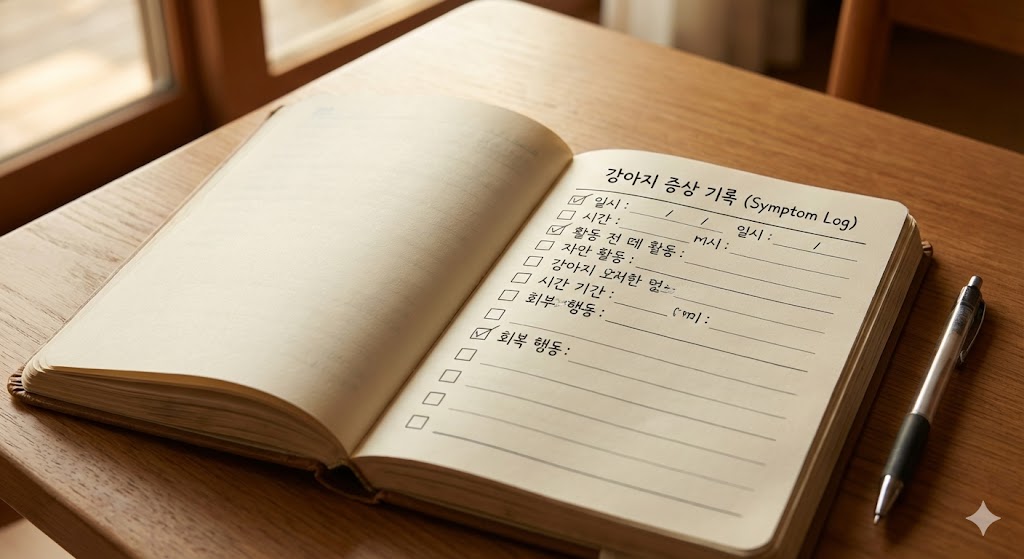 강아지 증상 기록 (Symptom Log)
일시 : / / 일시 : /
시간 : M시 :
활동 전 데 활동 :
자안 활동 :
강아지 오저한
시간 기간 :
회부 행동 :
회복 행동 :